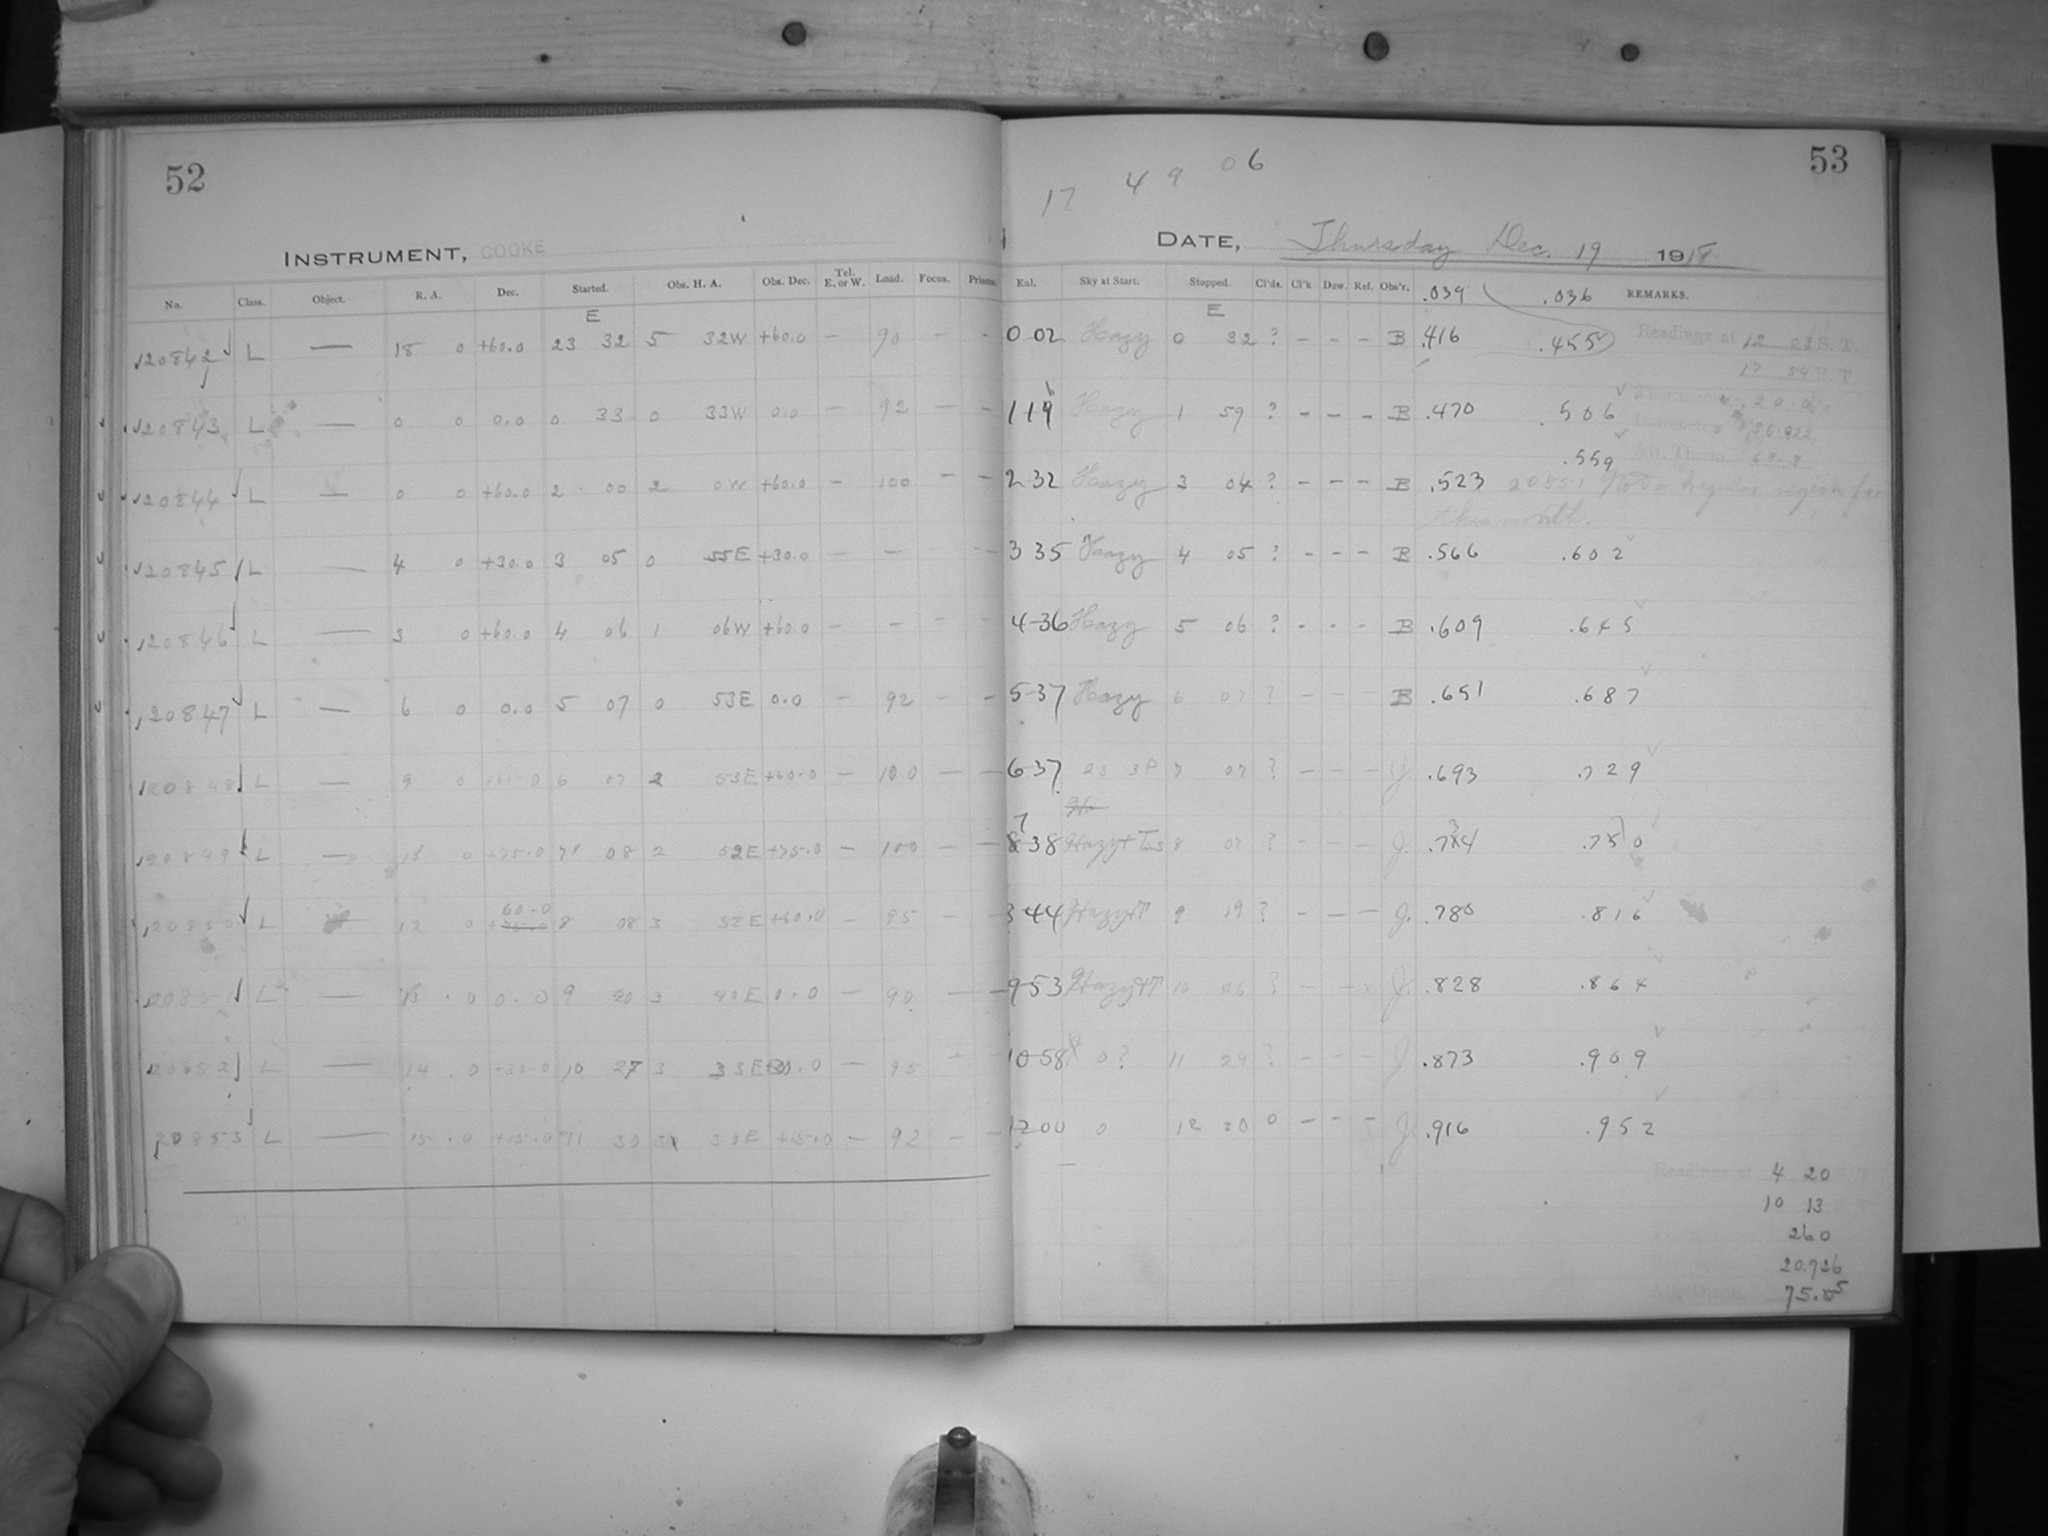 52
INSTRUMENT, COOKE
No. Class. Object. R. A. Dec. Started. Obs. H. A. Obs. Dec. Tel. E. or W. Load. Focus. Prisms.
E
20842 L — 18 0 +60.0 23 32 5 32W +60.0 — 90 — -
20843 L — 0 0 0.0 0 33 0 33W 0.0 — 92 — -
20844 L — 0 0 +60.0 2 00 2 0W +60.0 — 100 — —
20845 L — 4 0 +30.0 3 05 0 55E +30.0 — — - -
20846 L — 3 0 +60.0 4 06 1 06W +60.0 — - - -
20847 L — 6 0 0.0 5 07 0 53E 0.0 — 92 - -
20848 L — 9 0 6 07 2 53E +60.0 — 100 — —
20849 L — 0 +75.0 7 08 2 52E +75.0 — 100 — —
20850 L — 12 0 60.0 8 08 3 52E +60.0 — 95 — —
20851 L — 0 0.0 9 20 3 40E 0.0 — 90 — —
20852 L — 14 0 +30.0 10 27 3 33E +30.0 — 95 -
20853 L — 15 0 +15.0 11 30 3 30E +15.0 — 92 — —
53
17 49 06
DATE, Thursday Dec. 19 1918
Eql. Sky at Start. Stopped. Cl'ds. Cl'k Dew. Ref. Obs'r. .039 .036 REMARKS.
E
0 02 Hazy 0 32 ? - - - B .416 .455 Readings at 12 03 S. T.
17 54 E. T.
1 16 Hazy 1 59 ? - - - B .470 .506
Att. Therm.
.559
2 32 Hazy 3 04 ? - - - B .523 20851 Not a regular region for
this month.
3 35 Hazy 4 05 ? - - - B .566 .602
4-36 Hazy 5 06 ? - - - B .609 .645
5-37 Hazy 6 07 ? - - B .651 .687
6 37 7 07 ? - - - J. .693 .729
7 38 Hazy 8 07 ? - - - J. .734 .770
44 Hazy 9 19 ? - — — J. .780 .816
9 53 Hazy 10 06 ? - - J. .828 .864
10-58 0? 11 29 ? - - - J .873 .909
12 00 0 12 20 0 - - - J. .916 .952
Readings at 4 20 S. T.
10 13
260
20.726
Att. Therm. 75.5